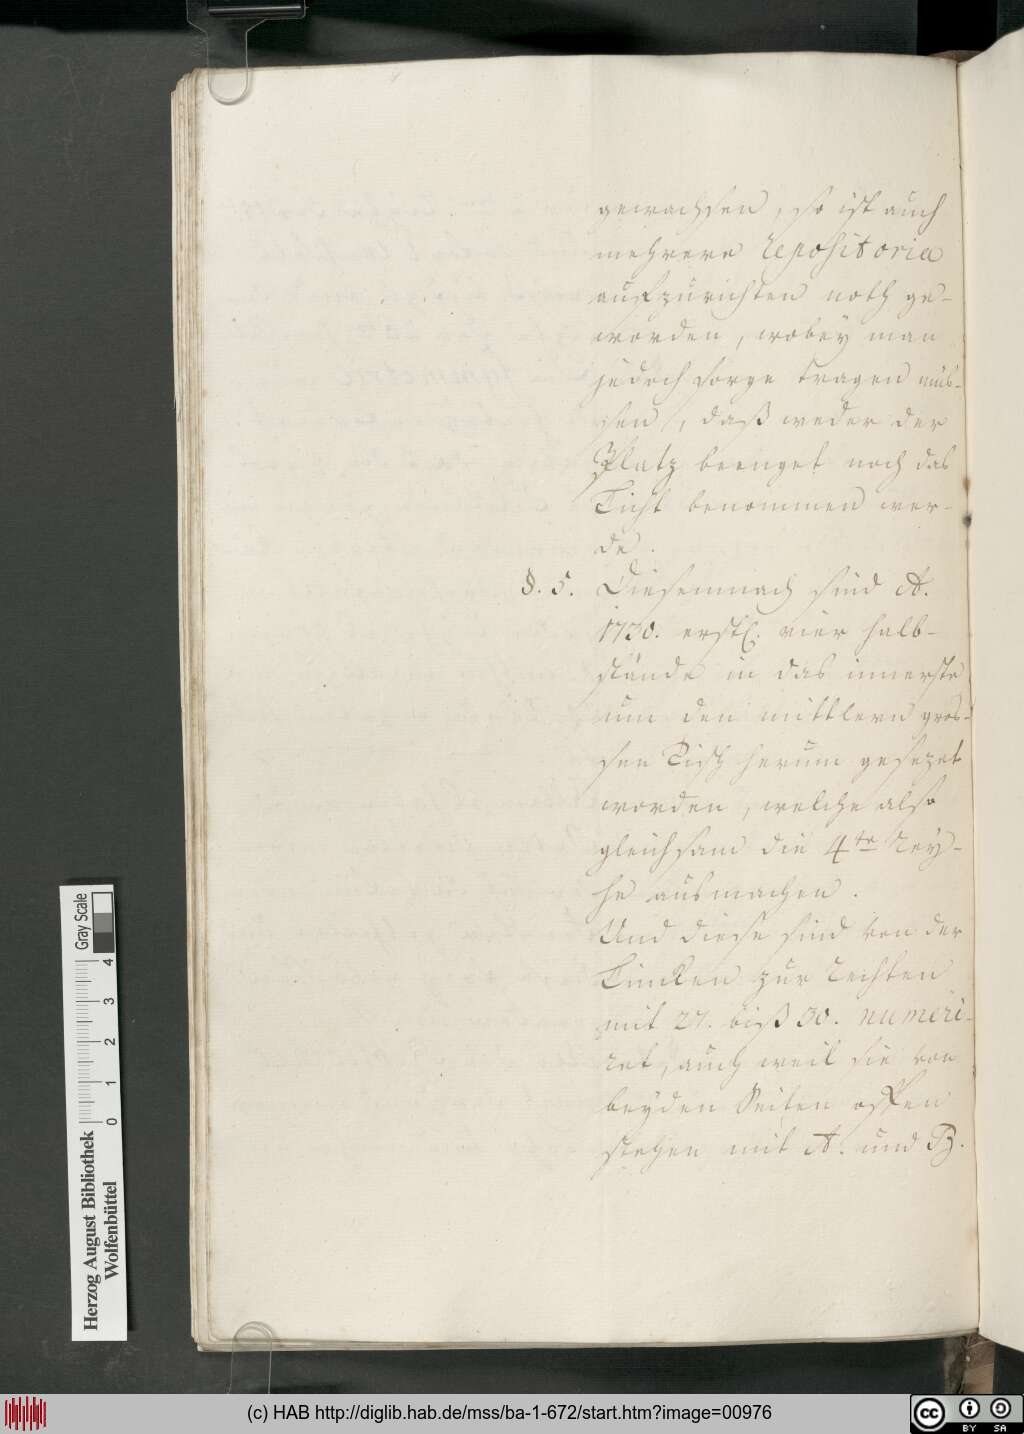 gewachsen, so ist auch
mehrere repositoria
aufzurichten noth ge-
worden, wobey man
jedoch sorge tragen müs-
sen, daß weder der
Platz beenget noch das
Licht benommen wer-
de.
§. 5. Diesemnach sind A.
1730. erstl. vier halb-
stände in das innerste
um den mittlern gros-
sen Tisch herum gesezet
worden, welche also
gleichsam die 4te Rey-
he ausmachen.
Und diese sind von der
Lincken zur rechten
mit 27. biß 30. numeri-
ret, auch weil sie von
beyden Seiten offen
stehen mit A. und B.
Gray Scale
0 1 2 3 4
Herzog August Bibliothek
Wolfenbüttel
(c) HAB http://diglib.hab.de/mss/ba-1-672/start.htm?image=00976
cc BY SA